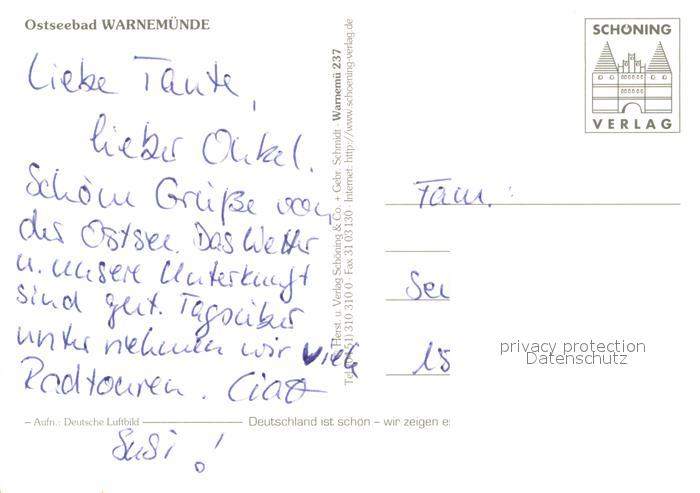 Ostseebad WARNEMÜNDE
Liebe Tante,
lieber Onkel.
Schöne Grüße von
der Ostsee. Das Wetter
u. unsere Unterkunft
sind gut. Tagsüber
unternehmen wir viele
Radtouren. Ciao
Susi!
– Aufn.: Deutsche Luftbild
Deutschland ist schön – wir zeigen es
Herst. u. Verlag Schöning & Co. + Gebr. Schmidt · Warnemü 237
Tel. (0451) 310 310 0 · Fax 31 03 130 · Internet: http://www.schoening-verlag.de
SCHÖNING
VERLAG
Fam.:
Sen
18
privacy protection
Datenschutz